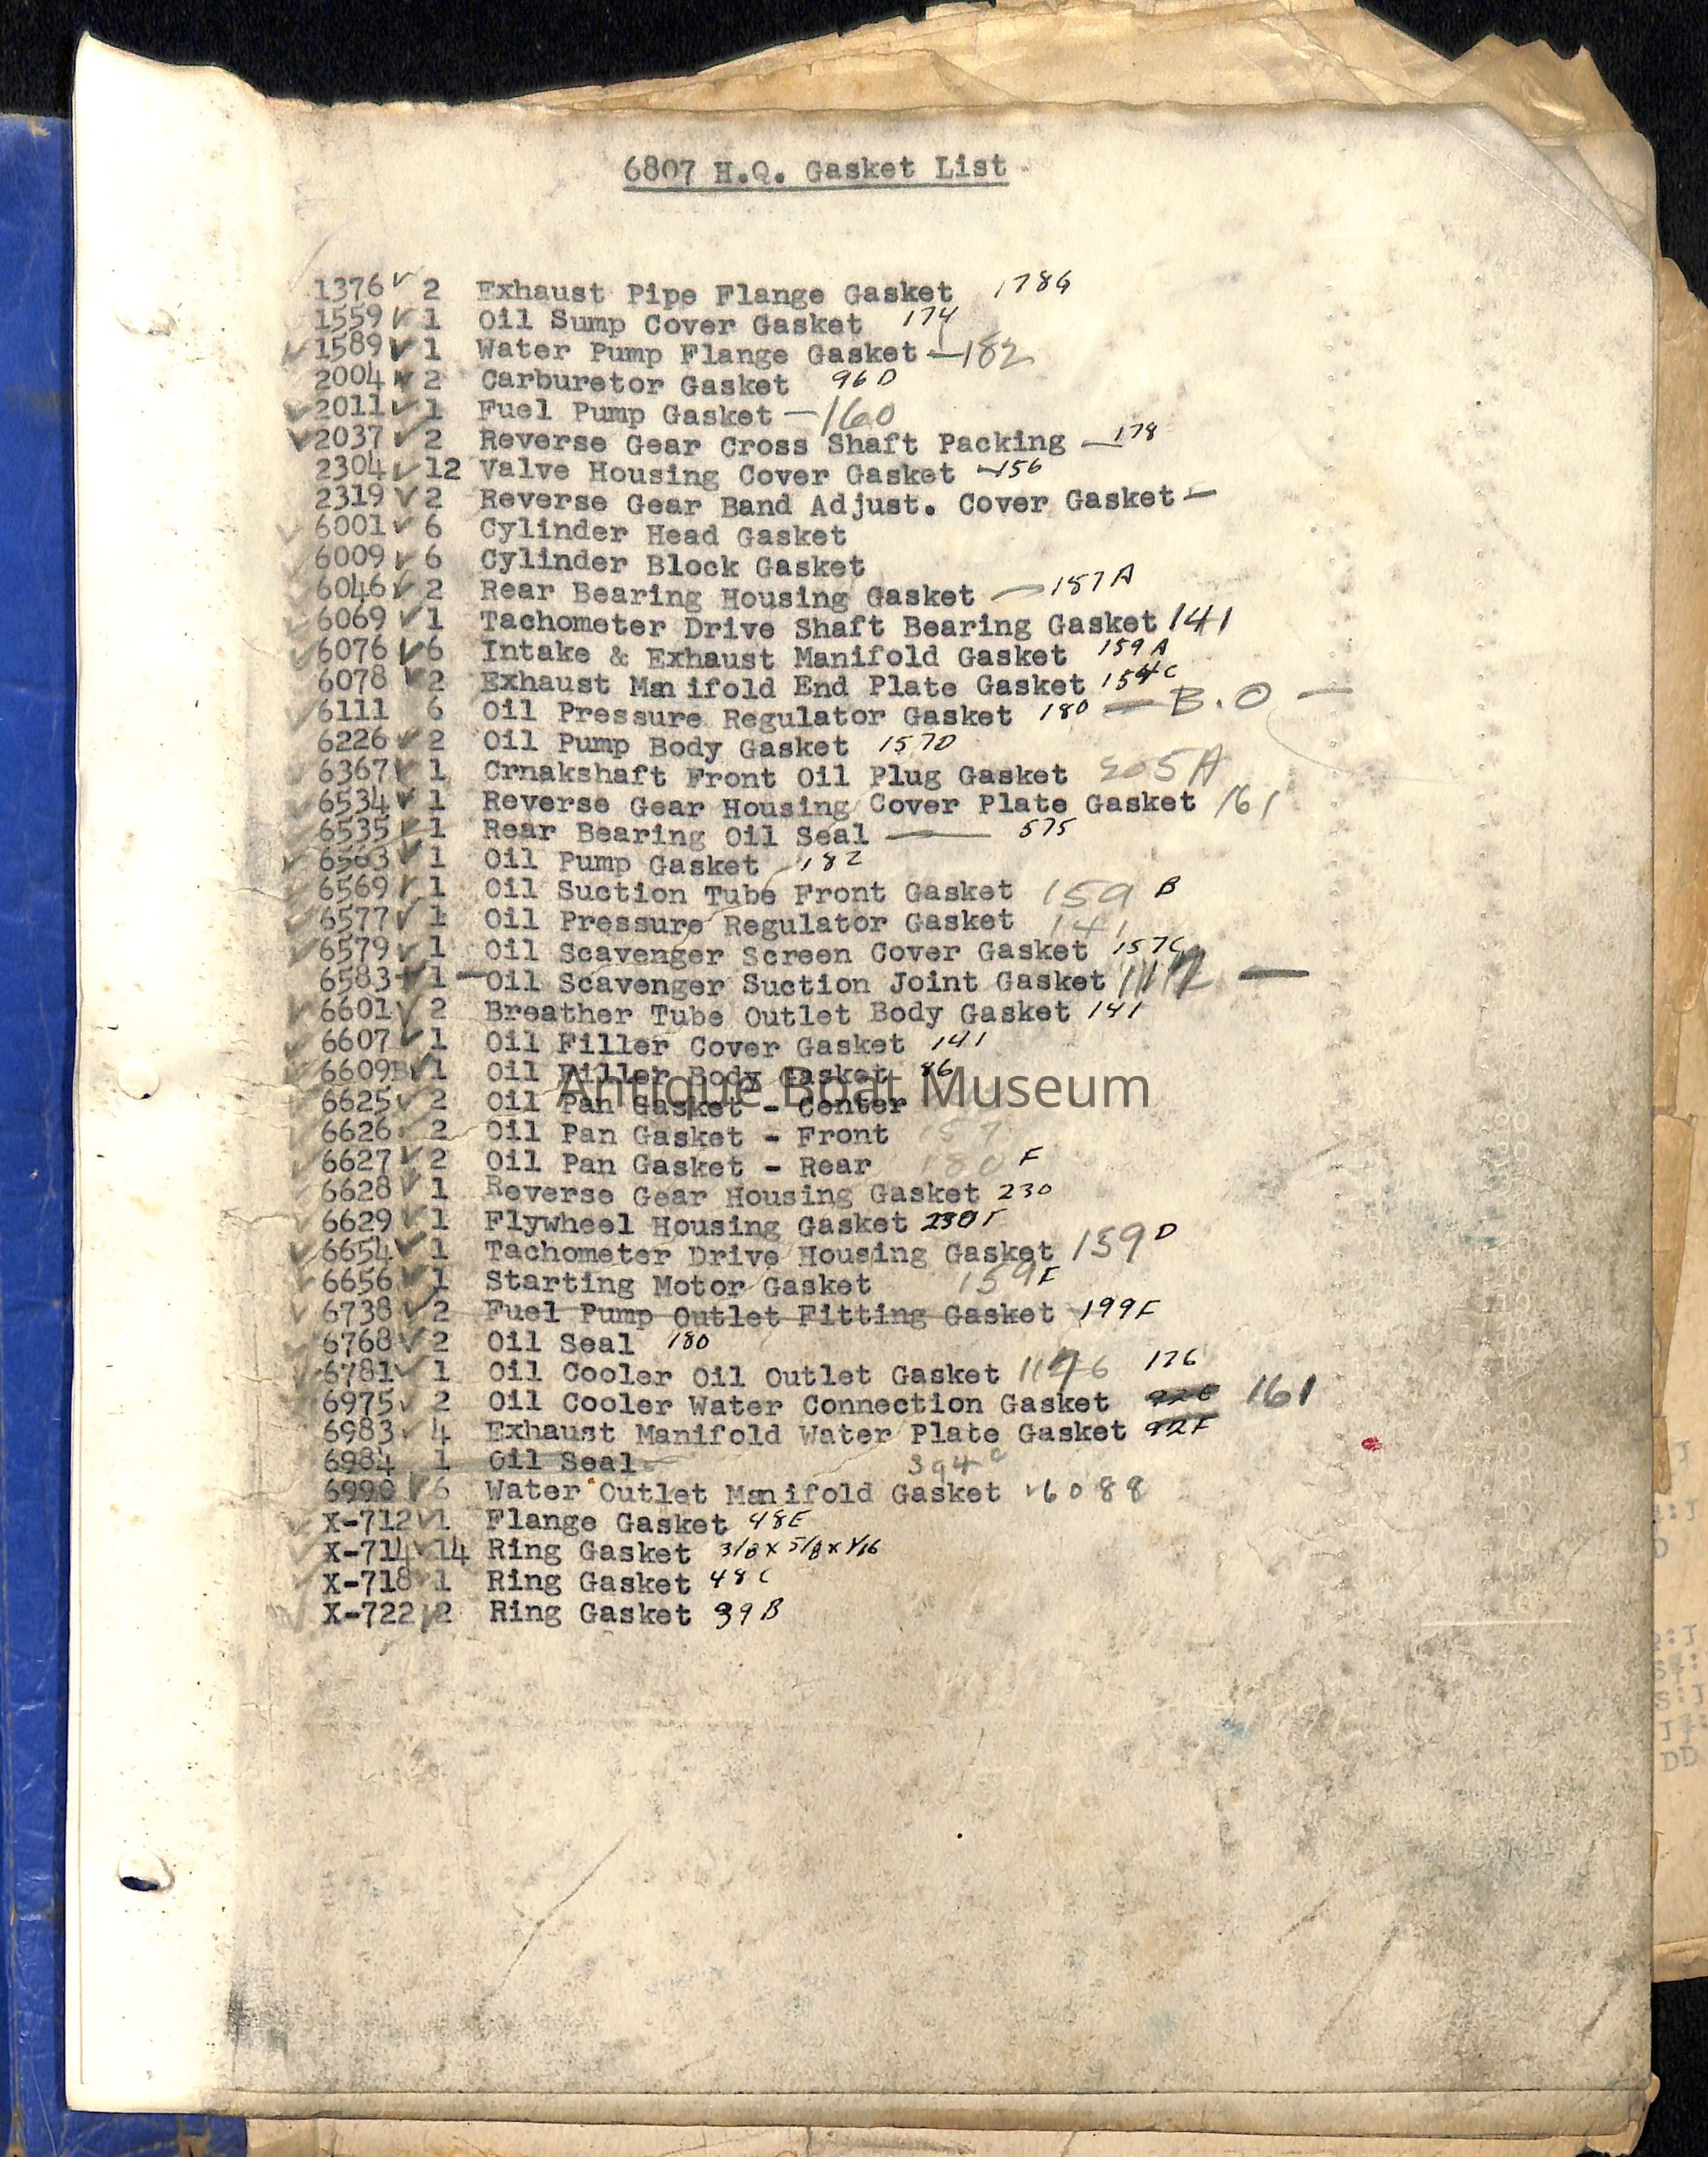 6807 H.Q. Gasket List
1376 ✓ 2 Exhaust Pipe Flange Gasket 178G
1559 ✓ 1 Oil Sump Cover Gasket 174
✓ 1589 ✓ 1 Water Pump Flange Gasket — 182
2004 ✓ 2 Carburetor Gasket 96D
✓ 2011 ✓ 1 Fuel Pump Gasket — 160
✓ 2037 ✓ 2 Reverse Gear Cross Shaft Packing — 178
2304 ✓ 12 Valve Housing Cover Gasket — 156
2319 ✓ 2 Reverse Gear Band Adjust. Cover Gasket —
✓ 6001 ✓ 6 Cylinder Head Gasket
✓ 6009 ✓ 6 Cylinder Block Gasket
✓ 6046 ✓ 2 Rear Bearing Housing Gasket — 157A
✓ 6069 ✓ 1 Tachometer Drive Shaft Bearing Gasket 141
✓ 6076 ✓ 6 Intake & Exhaust Manifold Gasket 159A
✓ 6078 ✓ 2 Exhaust Man ifold End Plate Gasket 154C
✓ 6111 6 Oil Pressure Regulator Gasket 180 — B.O —
✓ 6226 ✓ 2 Oil Pump Body Gasket 157D
✓ 6367 ✓ 1 Crnakshaft Front Oil Plug Gasket 205A
✓ 6534 ✓ 1 Reverse Gear Housing Cover Plate Gasket 161
✓ 6535 ✓ 1 Rear Bearing Oil Seal — 575
✓ 6563 ✓ 1 Oil Pump Gasket - 182
✓ 6569 ✓ 1 Oil Suction Tube Front Gasket 159 B
✓ 6577 ✓ 1 Oil Pressure Regulator Gasket 141
✓ 6579 ✓ 1 Oil Scavenger Screen Cover Gasket 157C
6583 1 — Oil Scavenger Suction Joint Gasket —
✓ 6601 ✓ 2 Breather Tube Outlet Body Gasket 141
✓ 6607 ✓ 1 Oil Filler Cover Gasket 141
✓ 6609B ✓ 1 Oil Filler Body Gasket 86
Antique Boat Museum
✓ 6625 ✓ 2 Oil Pan Gasket - Center
✓ 6626 ✓ 2 Oil Pan Gasket - Front 157
✓ 6627 ✓ 2 Oil Pan Gasket - Rear 180 F
✓ 6628 ✓ 1 Reverse Gear Housing Gasket 230
✓ 6629 ✓ 1 Flywheel Housing Gasket 230F
✓ 6654 ✓ 1 Tachometer Drive Housing Gasket 159D
✓ 6656 ✓ 1 Starting Motor Gasket 159F
✓ 6738 ✓ 2 Fuel Pump Outlet Fitting Gasket 199F
✓ 6768 ✓ 2 Oil Seal 180
✓ 6781 ✓ 1 Oil Cooler Oil Outlet Gasket 176
✓ 6975 ✓ 2 Oil Cooler Water Connection Gasket 161
✓ 6983 ✓ 4 Exhaust Manifold Water Plate Gasket 92F
6984 1 Oil Seal 394C
6990 ✓ 6 Water Outlet Man ifold Gasket 6088
✓ X-712 ✓ 1 Flange Gasket 48E
✓ X-714 ✓ 14 Ring Gasket 3/8 x 5/8 x 1/16
✓ X-718 ✓ 1 Ring Gasket 48C
✓ X-722 ✓ 2 Ring Gasket 39B